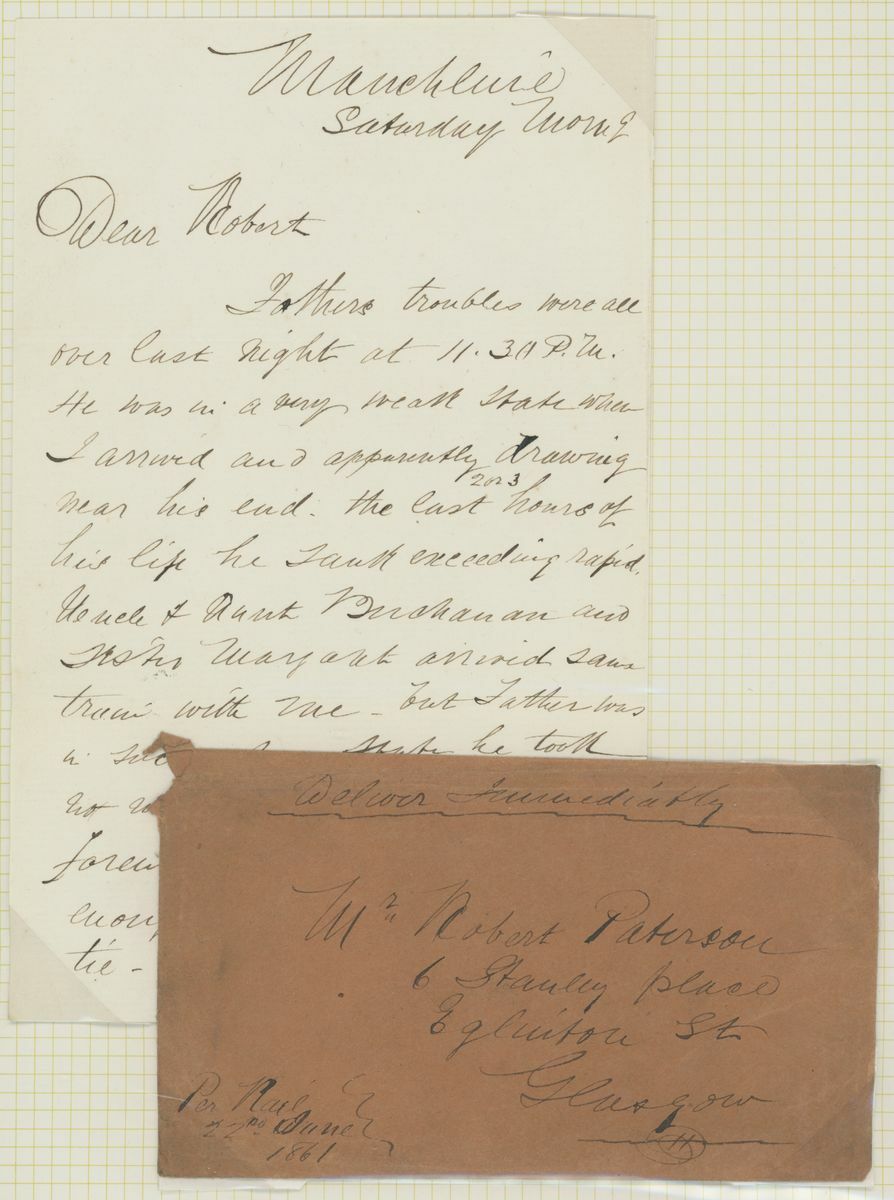 Mauchline
Saturday Morng
Dear Robert
Fathers troubles were all
over last night at 11.30 P.M.
He was in a very weak state when
I arrived and apparently drawing
near his end. the last 2 or 3 hours of
his life he sank exceeding rapid.
Uncle & Aunt Buchanan and
Sister Margaret arrived same
train with me - but Father was
in state he took
not
enough
tie -
Deliver Immediately
Mr Robert Paterson
6 Stanley place
Eglinton St
Glasgow
Per Rail
22nd June
1861
11